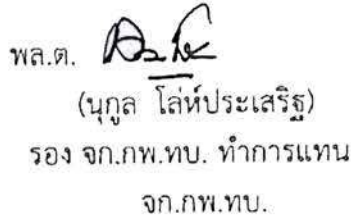 พล.ต.
(นุกูล โล่ห์ประเสริฐ)
รอง จก.กพ.ทบ. ทำการแทน
จก.กพ.ทบ.